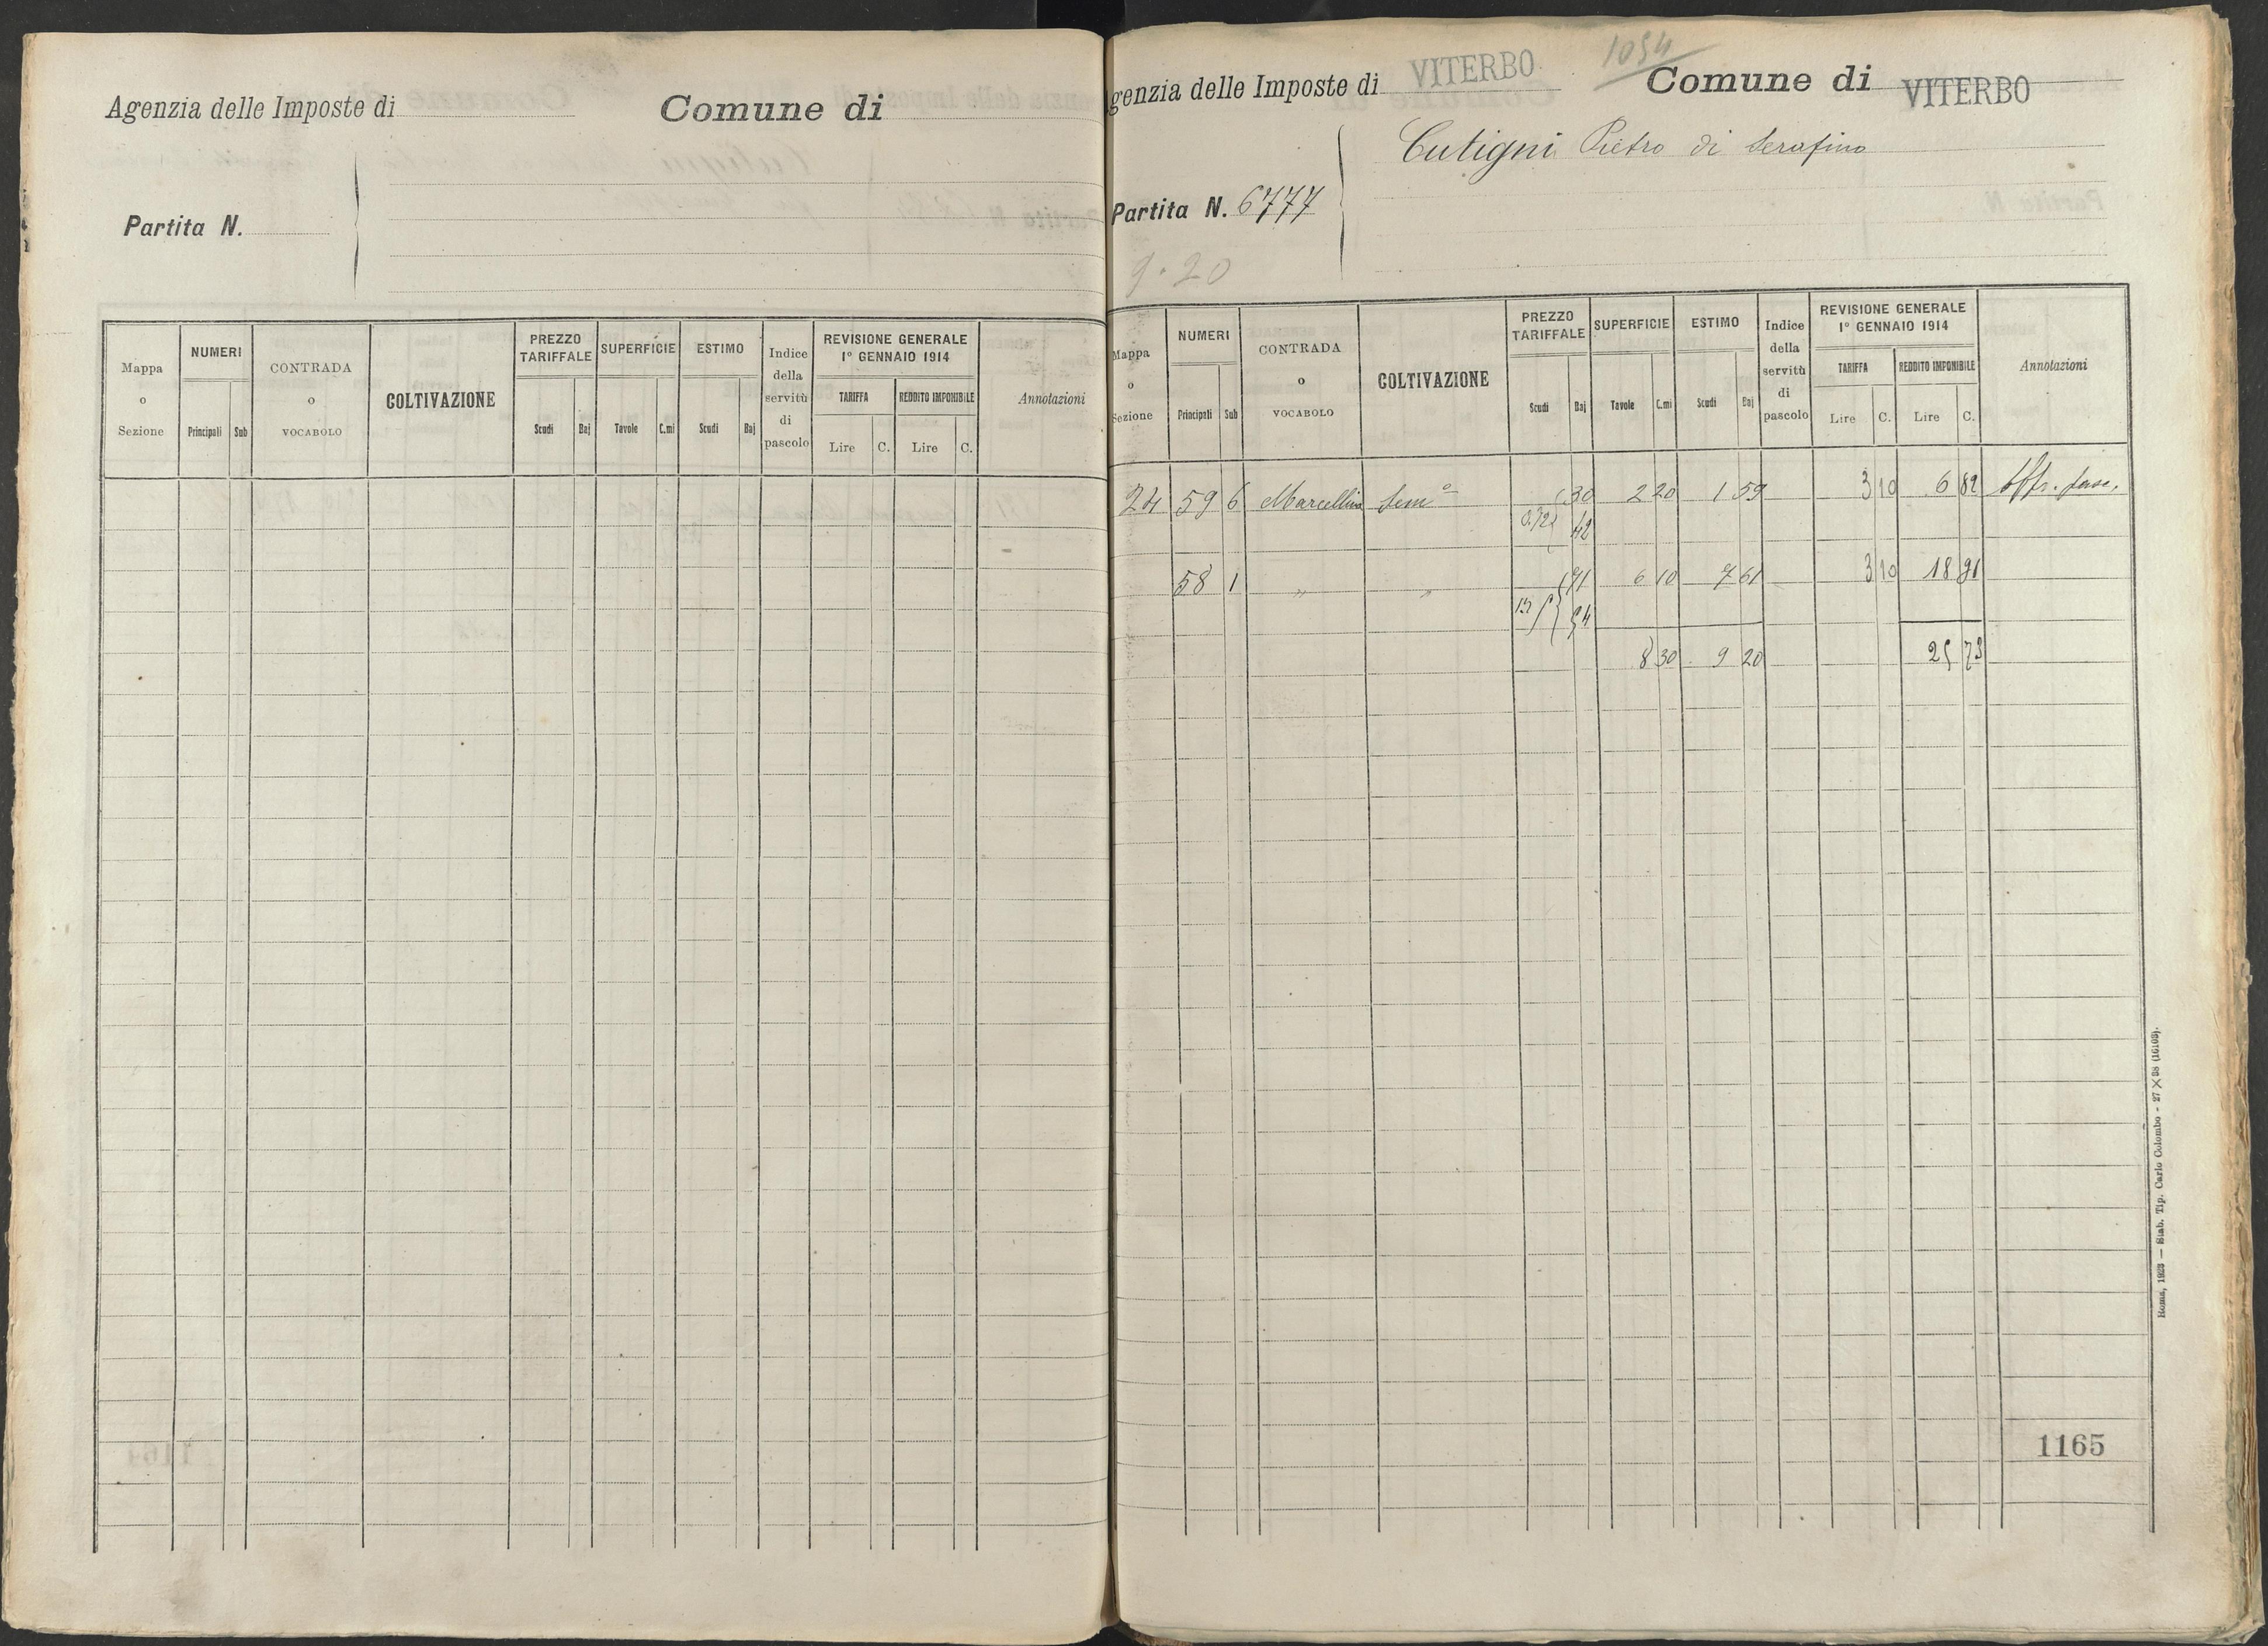 Agenzia delle Imposte di
Comune di
Partita N.
Mappa o Sezione
NUMERI
Principali Sub
CONTRADA o VOCABOLO
COLTIVAZIONE
PREZZO TARIFFALE
Scudi Baj
SUPERFICIE
Tavole C.mi
ESTIMO
Scudi Baj
Indice della servitù di pascolo
REVISIONE GENERALE
1° GENNAIO 1914
TARIFFA
Lire C.
REDDITO IMPONIBILE
Lire C.
Annotazioni
1054
genzia delle Imposte di VITERBO
Comune di VITERBO
Cutigni Pietro di Serafino
Partita N. 6777
9.20
Mappa o Sezione
NUMERI
Principali Sub
CONTRADA o VOCABOLO
COLTIVAZIONE
PREZZO TARIFFALE
Scudi Baj
SUPERFICIE
Tavole C.mi
ESTIMO
Scudi Baj
Indice della servitù di pascolo
REVISIONE GENERALE
1° GENNAIO 1914
TARIFFA
Lire C.
REDDITO IMPONIBILE
Lire C.
Annotazioni
24 59 6 Marcellino Sem° 30 2 20 1 59 3 10 6 82
0.72 42
58 1 " " 71 6 10 7 61 3 10 18 91
54
8 30 9 20 25 73
1165
Roma, 1923 — Stab. Tip. Carlo Colombo - 27 × 38 (16103).